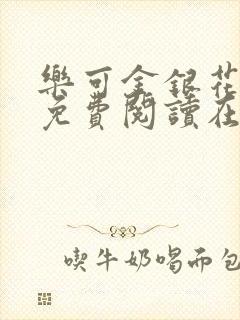 樂可金銀花
免費閱讀在
喫牛奶喝面包